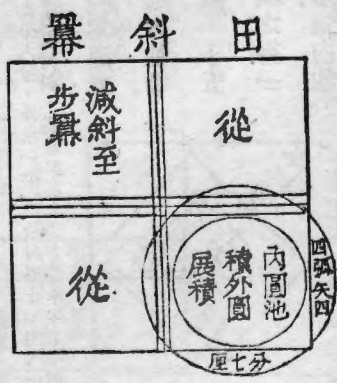 田斜羃
從
減斜至
步羃
從
內圓池
積外圓
展積
四弧矢四
分七厘